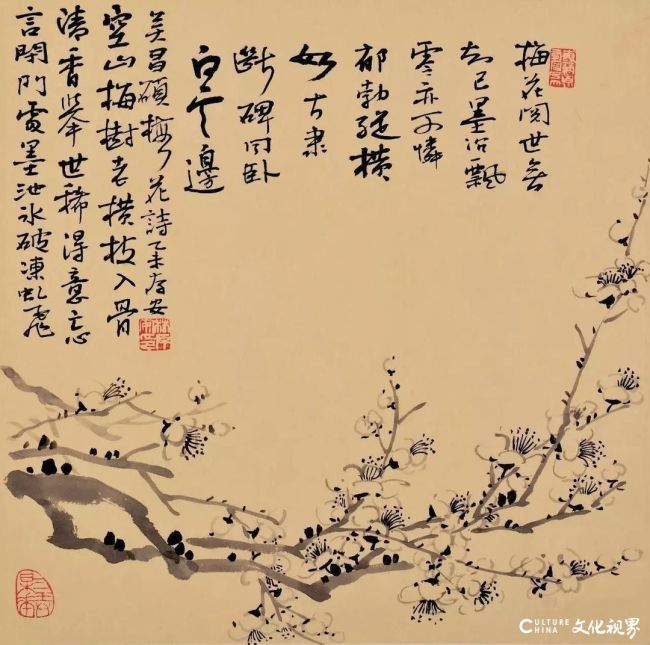 梅花閱世無
知己墨沼飄
零亦可憐
郁勃縱橫
如古隶
斷碑同臥
白雲邊
吴昌碩梅花詩乙未存安
空山梅樹老橫枝入骨
清香舉世稀得意忘
言閉門處墨池冰破凍虬飛
CULTURE
CHINA 文化視界